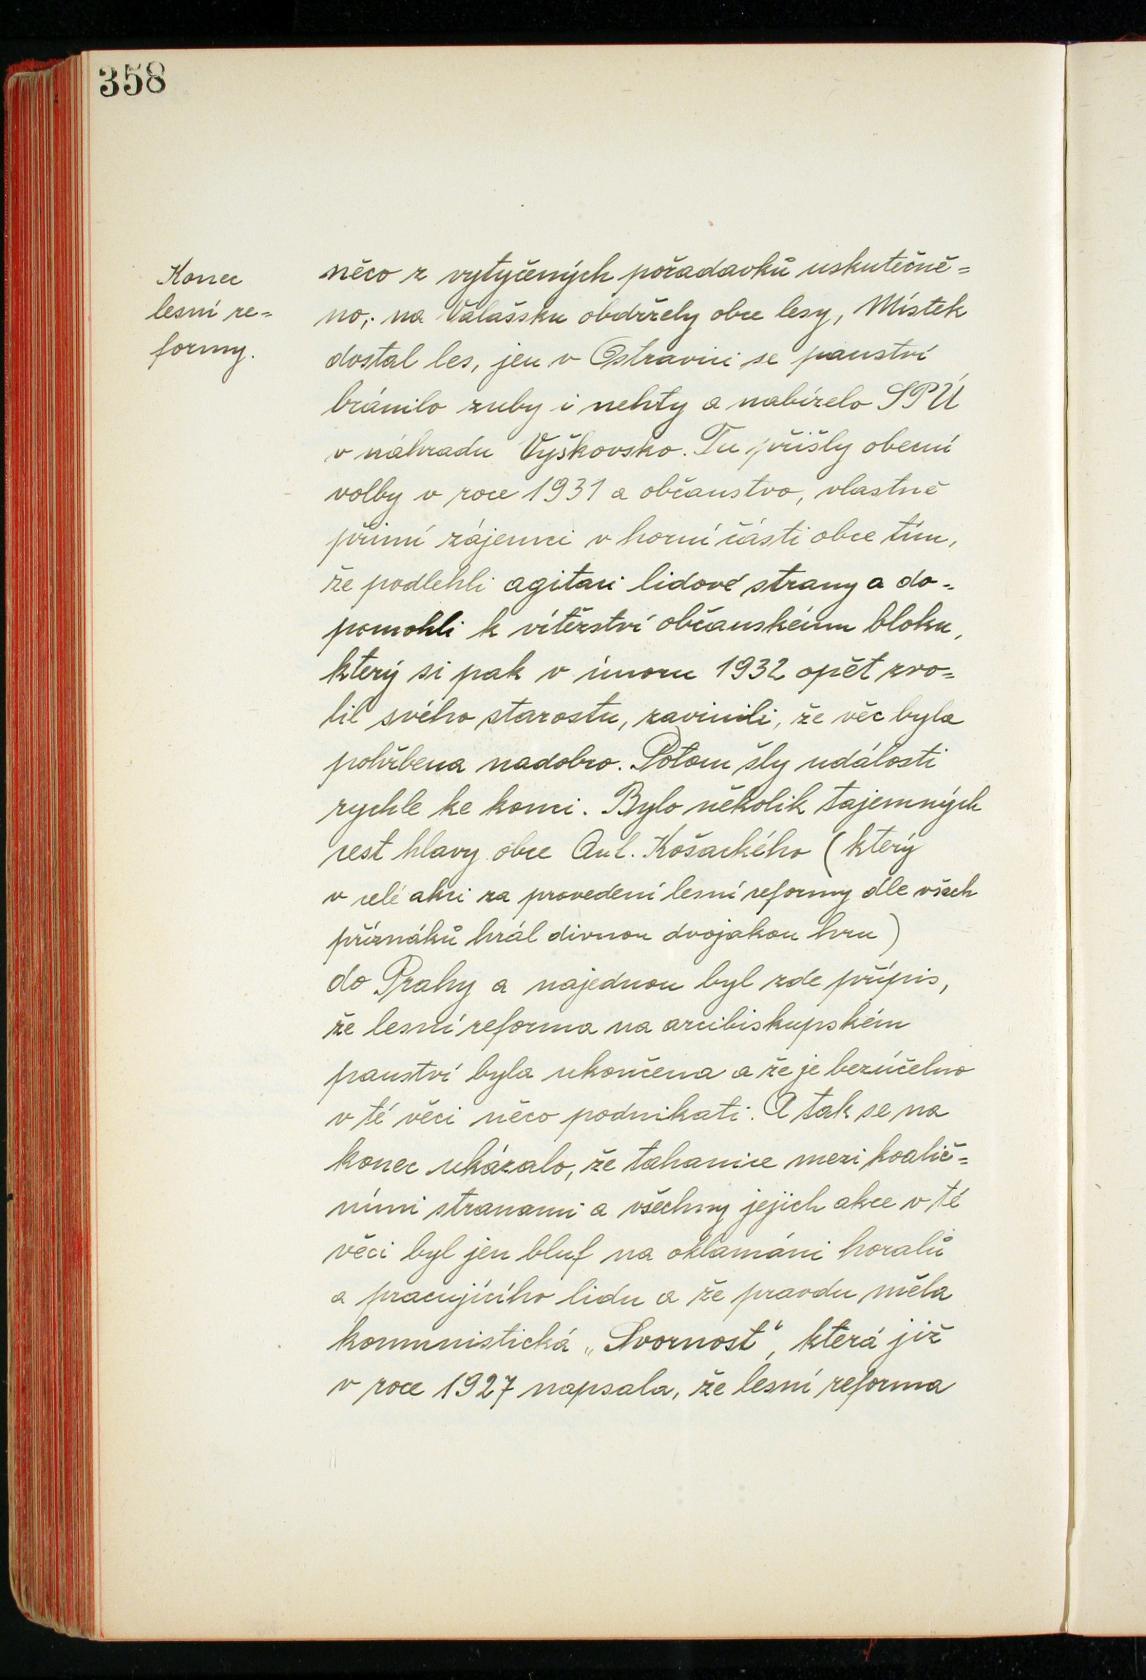 358
Konec
lesní re=
formy.
něco z vytyčených požadavků uskutečně=
no; na Valašsku obdržely obce lesy, Místek
dostal les, jen v Ostravici se panství
bránilo zuby i nehty a nabízelo SPÚ
v náhradu Vyškovsko. Tu přišly obecní
volby v roce 1931 a občanstvo, vlastně
přímí zájemci v horní části obce tím,
že podlehli agitaci lidové strany a do-
pomohli k vítězství občanskému bloku,
který si pak v únoru 1932 opět zvo=
lil svého starostu, zavinili, že věc byla
pohřbena nadobro. Potom šly události
rychle ke konci. Bylo několik tajemných
cest hlavy obce Ant. Košackého (který
v celé akci za provedení lesní reformy dle všech
příznáků hrál divnou dvojakou hru)
do Prahy a najednou byl zde přípis,
že lesní reforma na arcibiskupském
panství byla ukončena a že je bezúčelno
v té věci něco podnikati. A tak se na
konec ukázalo, že tahanice mezi koalič=
ními stranami a všechny jejich akce v té
věci byl jen bluf na oklamáni horalů
a pracujícího lidu a že pravdu měla
komunistická „Svornost“, která již
v roce 1927 napsala, že lesní reforma